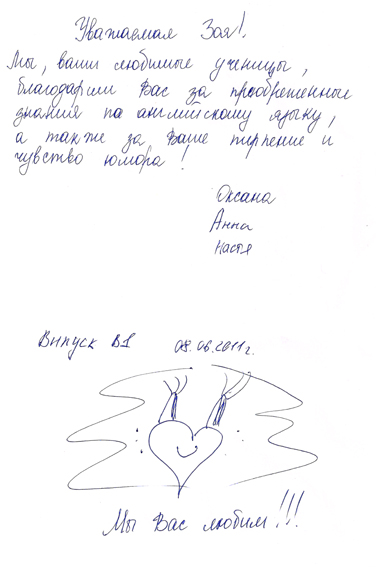 Уважаемая Зоя!
Мы, ваши любимые ученицы,
благодарим Вас за преобретенные
знания по английскому языку,
а также за Ваше терпение и
чувство юмора!
Оксана
Анна
Настя
Выпуск B1 08.06.2011г.
Мы Вас любим!!!